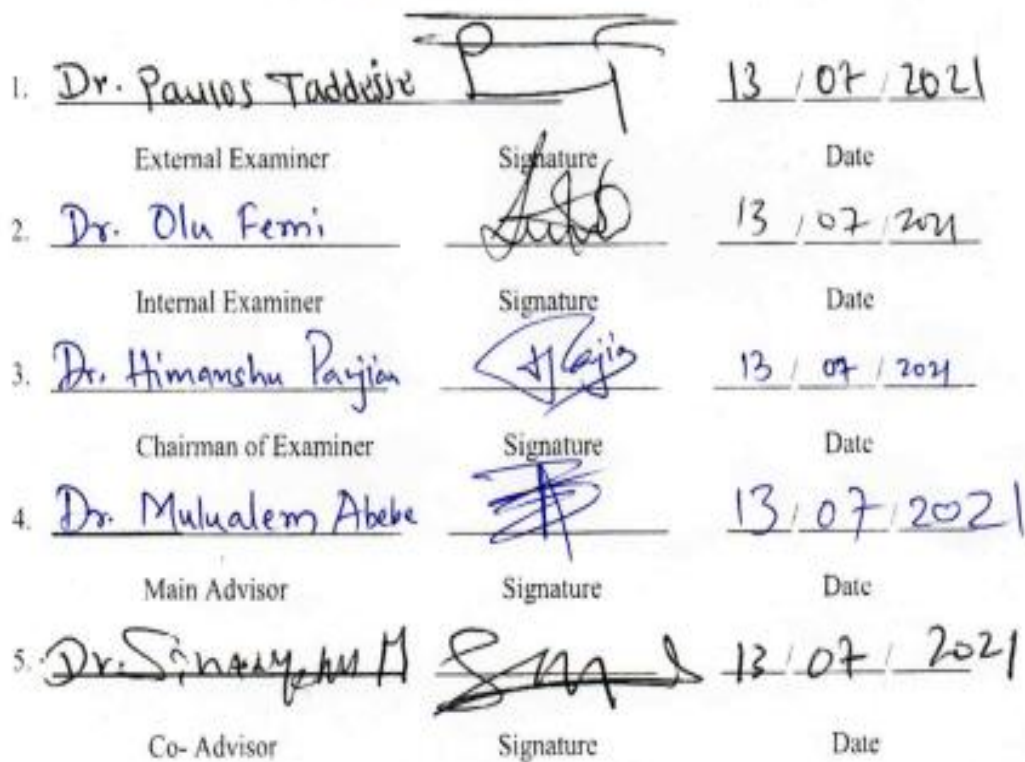 1. Dr. Paulos Taddesse 13 / 07 / 2021
External Examiner Signature Date
2. Dr. Olu Femi 13 / 07 / 2021
Internal Examiner Signature Date
3. Dr. Himanshu 13 / 07 / 2021
Chairman of Examiner Signature Date
4. Dr. Mulualem Abebe 13 / 07 / 2021
Main Advisor Signature Date
5. Dr. M 13 / 07 / 2021
Co- Advisor Signature Date